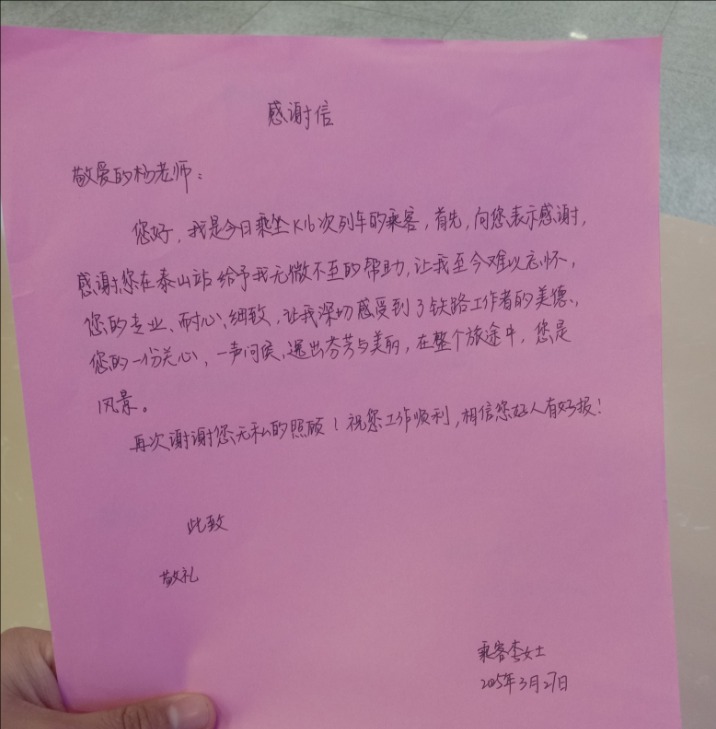 感谢信
敬爱的杨老师：
您好，我是今日乘坐K16次列车的乘客，首先，向您表示感谢，
感谢您在泰山站给予我无微不至的帮助，让我至今难以忘怀，
您的专业、耐心、细致，让我深切感受到了铁路工作者的美德，
您的一份关心，一声问候，透出芬芳与美丽，在整个旅途中，您是
风景。
再次谢谢您无私的照顾！祝您工作顺利，相信您好人有好报！
此致
敬礼
乘客李女士
2025年3月27日